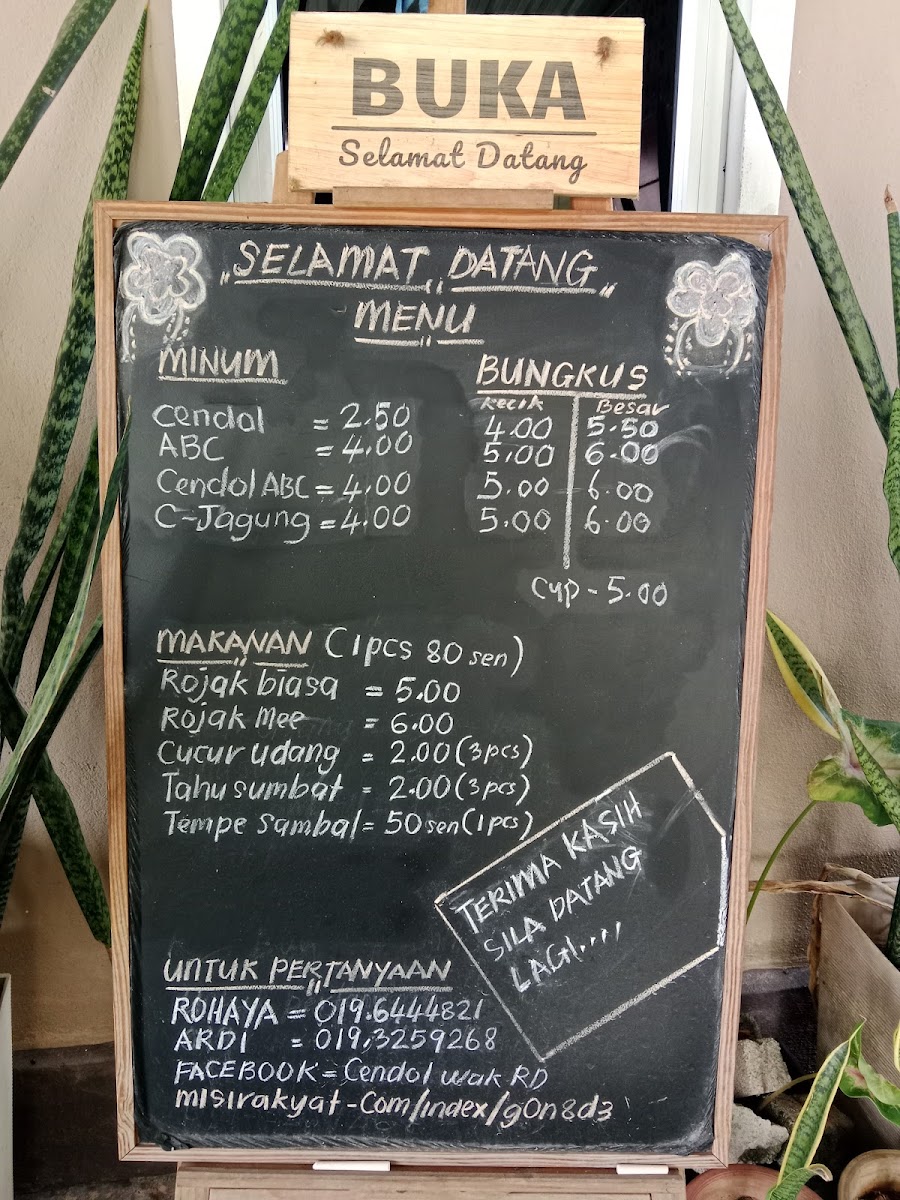 BUKA
Selamat Datang
„SELAMAT, DATANG„
MENU
MINUM
BUNGKUS
Kecik Besar
Cendol = 2.50 4.00 5.50
ABC = 4.00 5.00 6.00
Cendol ABC = 4.00 5.00 6.00
C-Jagung = 4.00 5.00 6.00
Cup - 5.00
MAKANAN (1pcs 80 sen)
Rojak biasa = 5.00
Rojak Mee = 6.00
Cucur udang = 2.00 (3pcs)
Tahu sumbat = 2.00 (3pcs)
Tempe sambal = 50 sen (1pcs)
TERIMA KASIH
SILA DATANG
LAGI....
UNTUK PERTANYAAN
ROHAYA = 019.6444821
ARDI = 019.3259268
FACEBOOK = Cendol wak RD
misirakyat-Com/index/g0n8d3